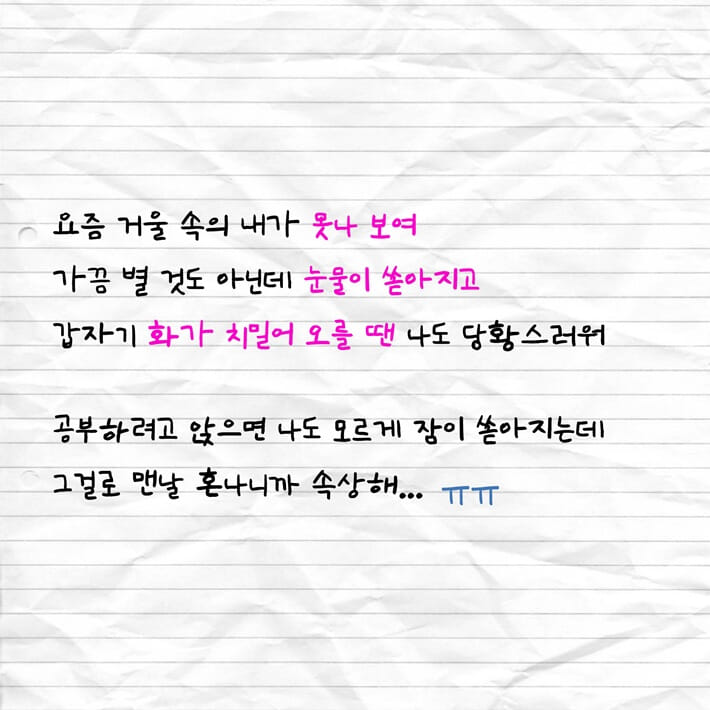 요즘 거울 속의 내가 못나 보여
가끔 별 것도 아닌데 눈물이 쏟아지고
갑자기 화가 치밀어 오를 땐 나도 당황스러워
공부하려고 앉으면 나도 모르게 잠이 쏟아지는데
그걸로 맨날 혼나니까 속상해... ㅠㅠ